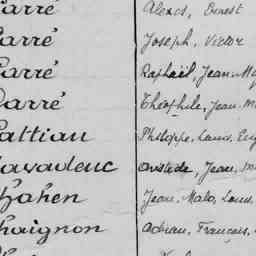 Carré Alexis, Ernest
Carré Joseph, Victor
Carré Raphaël, Jean, M
Carré Théophile, Jean, M
Cattiau Philippe, Louis, Eug
Cavadenc Aristide, Jean,
Cahen Jean, Malo, Louis,
Chaignon Adrian, François,